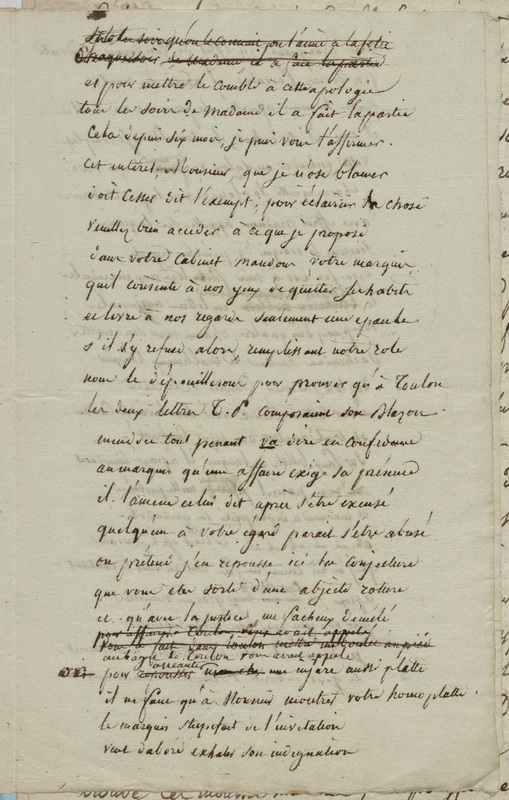 et pour mettre le comble à cette apologie
tous les soirs de Madame il a fait la partie
Cela depuis six mois, je puis vous l'affirmer.
Cet interet, Monsieur, que je n'ose blamer
doit Cesser dit l'exempt, pour éclaircir la chose
veuillez bien acceder à ce que je propose
dans votre Cabinet mandons votre marquis
qu'il consente à nos yeux de quitter ses habits
et livre à nos regards seulement une épaule
s'il s'y refuse alors, remplissant notre role
nous le dépouillerons pour prouver qu'à Toulon
les deux lettres T. P. composaient son Blazon.
tout prenant va dire en confidence
au marquis qu'une affaire exige sa présence
il l'amene celui dit après s'être excusé
quelqu'un à votre égard parait s'etre abusé
on prétend j'en repousse ici la conjecture
que vous etes sorti d'une abjecte roture
et qu'avec la justice un facheux démélé
au bagne de Toulon vous avait appelé
pour anéantir une injure aussi platte
il ne faut qu'à Monsieur montrer votre homoplatte.
le marquis stupefait de l'invitation
veut dabord exhaler son indignation